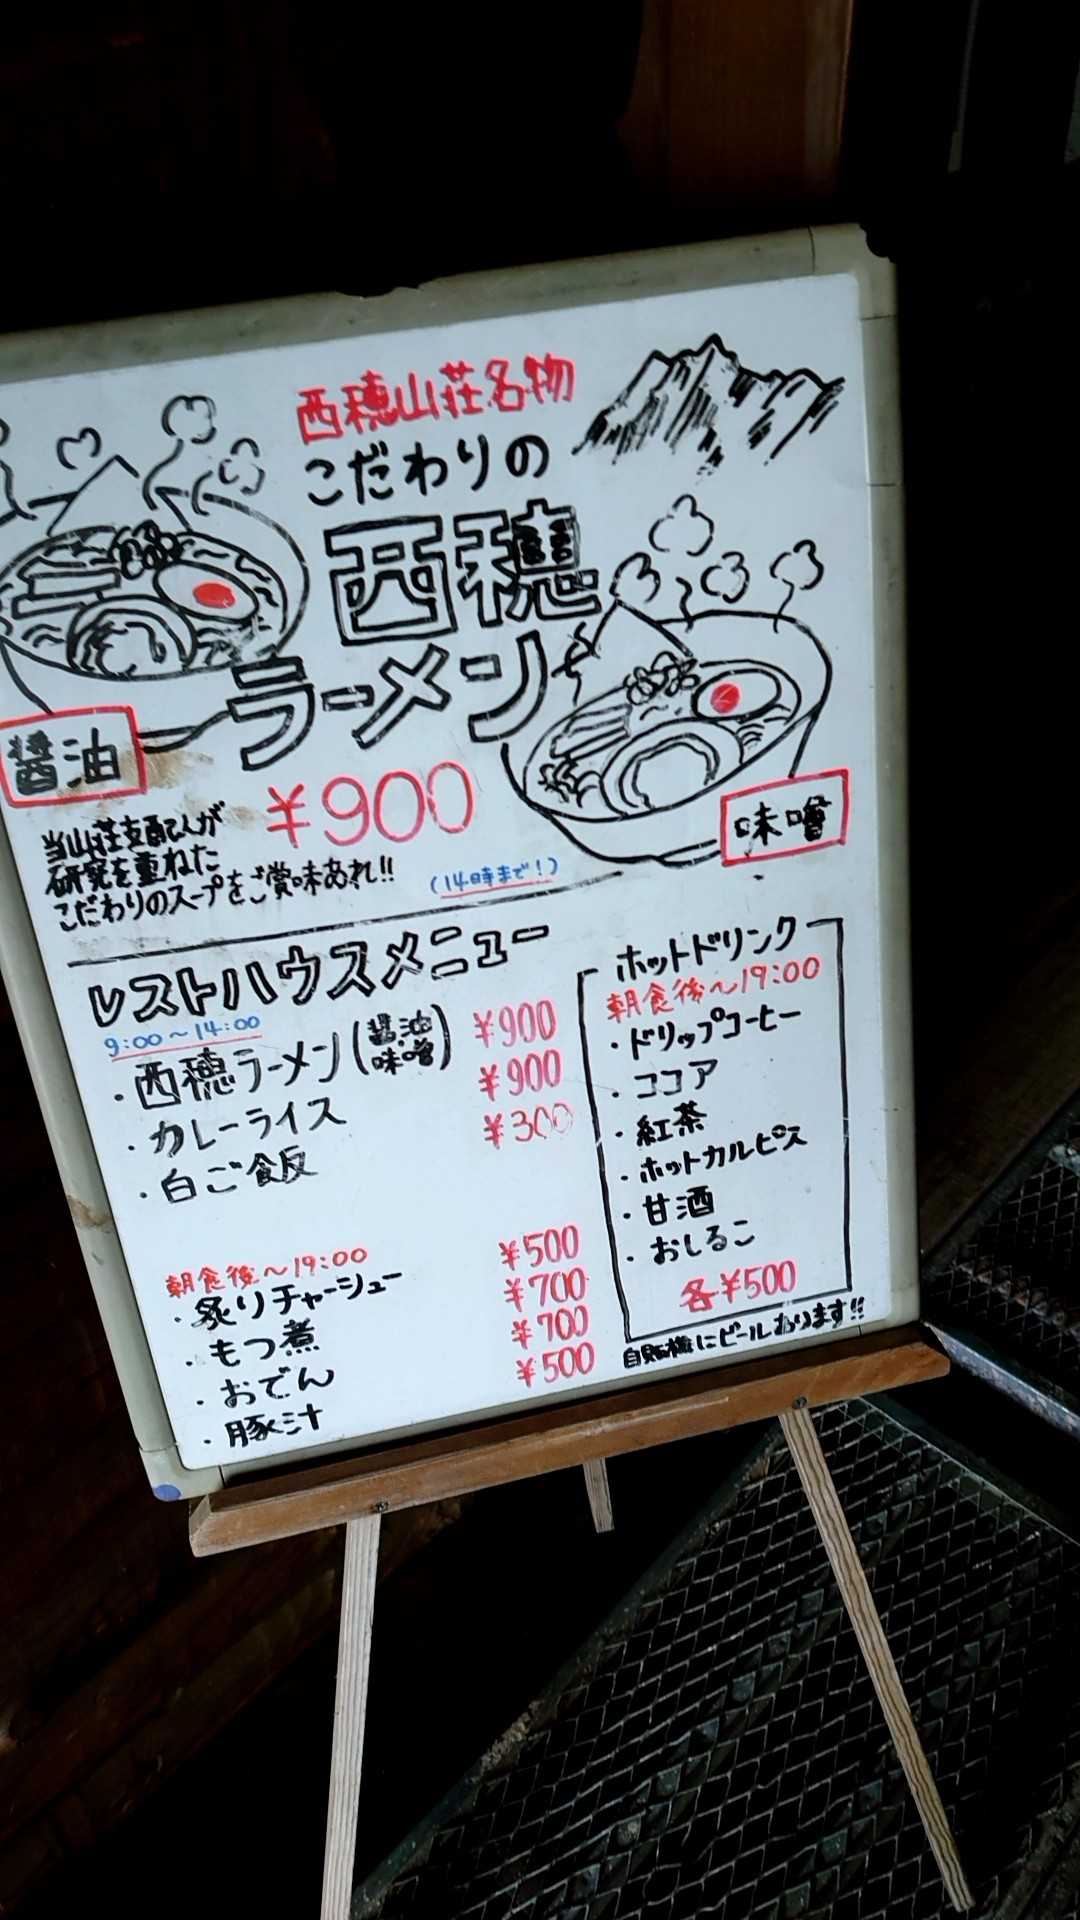 西穂山荘名物
こだわりの
西穂
ラーメン
醤油
味噌
¥900
当山荘支配人が
研究を重ねた
こだわりのスープをご賞味あれ!!
(14時まで!)
レストハウスメニュー
9:00～14:00
・西穂ラーメン(醤油 味噌) ¥900
・カレーライス ¥900
・白ご飯 ¥300
朝食後～19:00
・炙りチャーシュー ¥500
・もつ煮 ¥700
・おでん ¥700
・豚汁 ¥500
ホットドリンク
朝食後～19:00
・ドリップコーヒー
・ココア
・紅茶
・ホットカルピス
・甘酒
・おしるこ
各¥500
自販機にビールあります!!